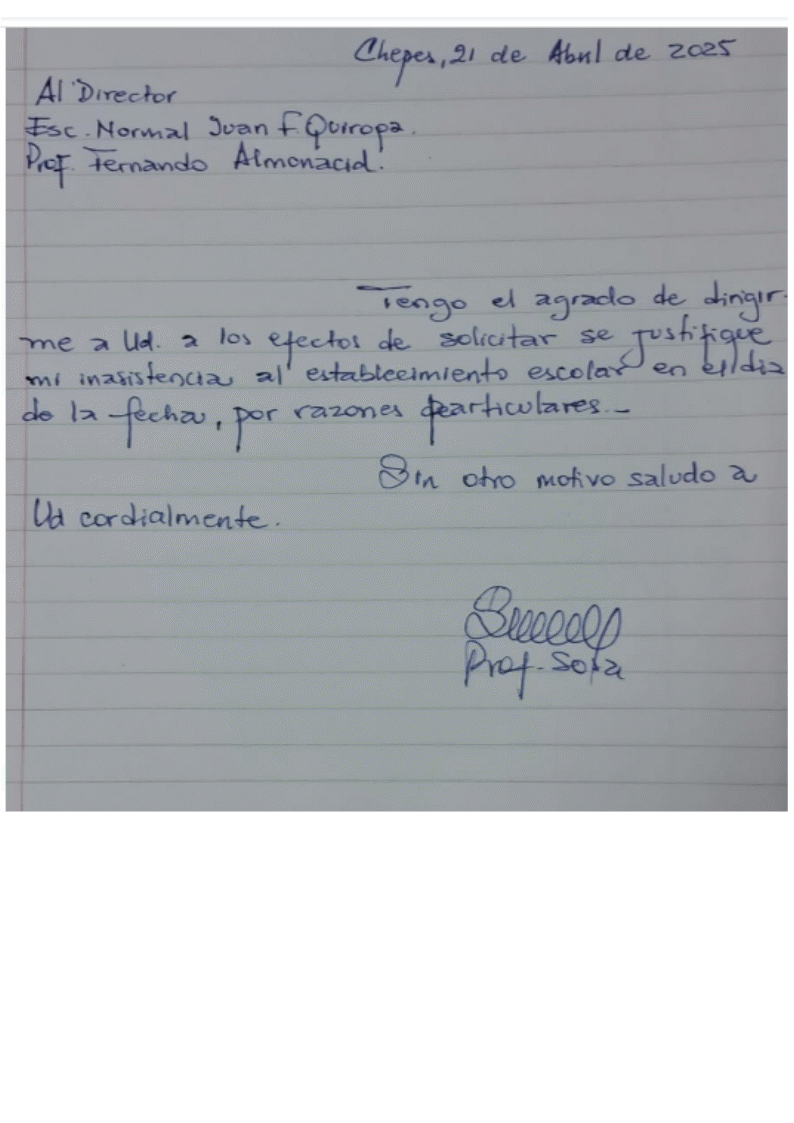 Chepes, 21 de Abril de 2025
Al Director
Esc. Normal Juan F. Quiroga.
Prof. Fernando Almonacid.
Tengo el agrado de dirigir-
me a Ud. a los efectos de solicitar se justifique
mi inasistencia al establecimiento escolar en el día
de la fecha, por razones particulares._
Sin otro motivo saludo a
Ud cordialmente.
Prof. Sofa